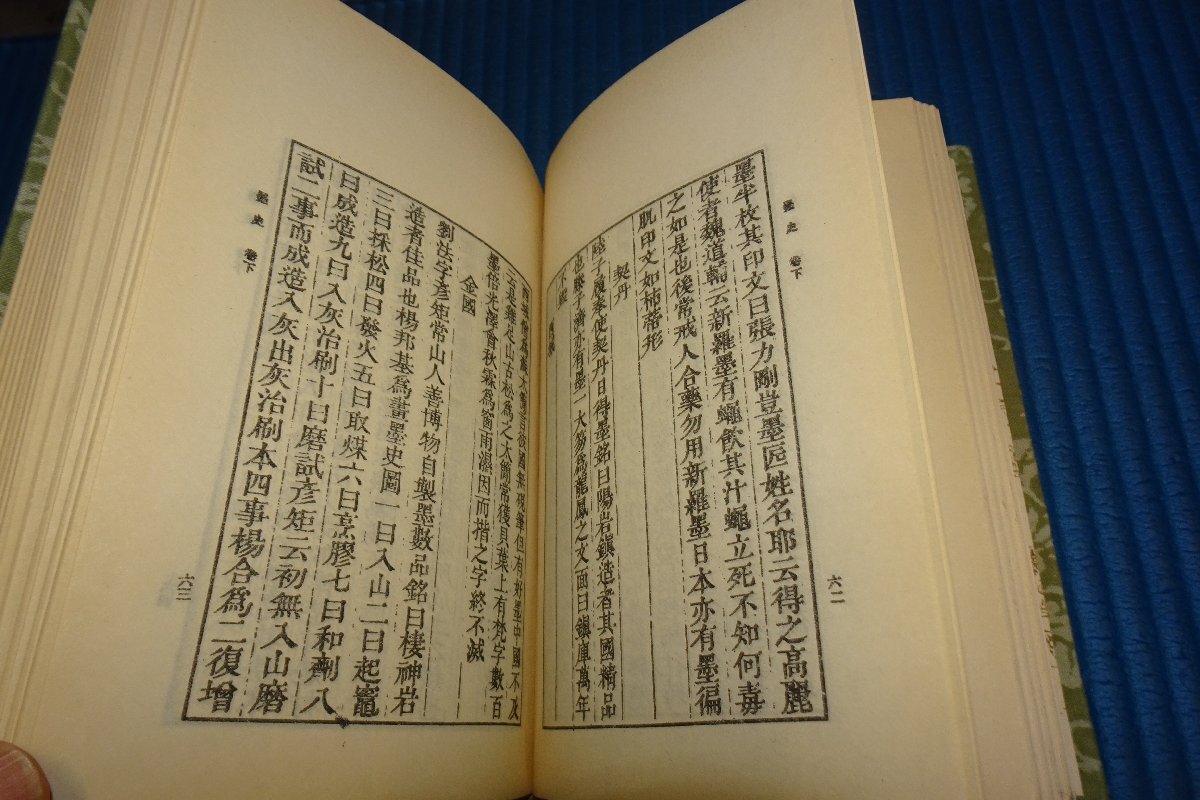 墨史 卷下
墨半枚其印文曰張力剛豈墨匠姓名耶云得之高麗
使者魏道輔云新羅墨有蠅飲其汁蠅立死不知何毒
之如是也後常戒人合藥勿用新羅墨日本亦有墨徧
肌印文如柿蔕形
契丹
子履奉使契丹日得墨銘曰陽岩鎮造者其國精品
也滕子濟亦有墨一大笏爲龍鳳之文面曰鎮庫萬年
不
六二
國無硯筆但有好墨中國不及
云是雞足山古松爲之太簡常獲貝葉上有梵字數百
墨倍光澤會秋霖爲窗雨濕因而揩之字終不滅
金國
劉法字彦矩常山人善博物自製墨數品銘曰棲神岩
造者佳品也楊邦基爲畫墨史圖一曰入山二曰起竈
三曰採松四曰發火五曰取煤六曰烹膠七曰和劑八
曰成造九曰入灰治刷十曰磨試彦矩云初無入山磨
試二事而成造入灰出灰治刷本四事楊合爲二復增
墨史 卷下
六三